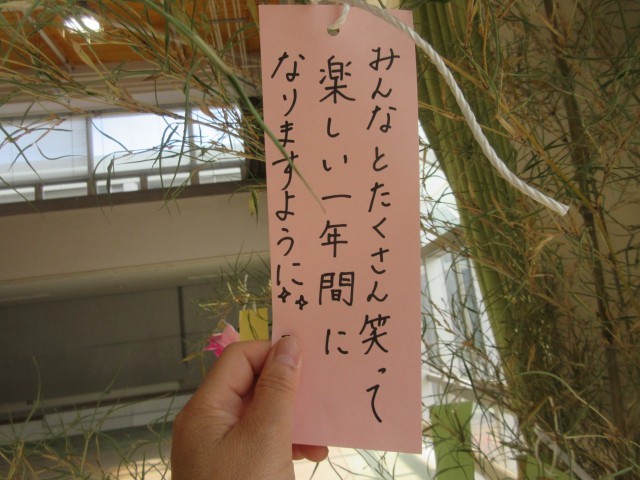 みんなとたくさん笑って
楽しい一年間に
なりますように